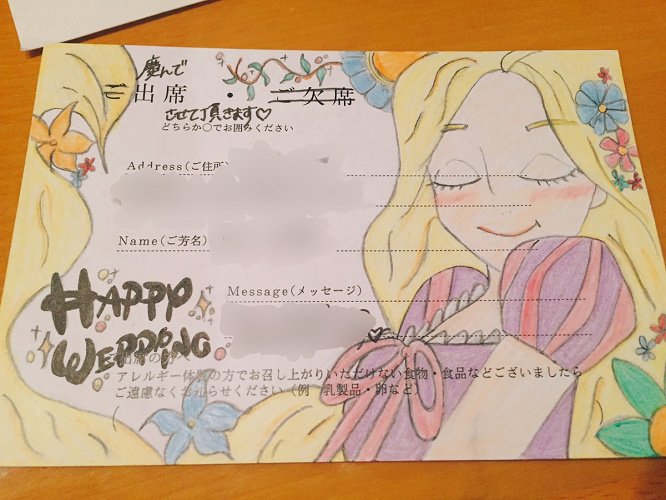 慶んで
ご出席 ・ ご欠席
させて頂きます♡
どちらか○でお囲みください
Address(ご住所)
Name(ご芳名)
Message(メッセージ)
HAPPY
WEDDING
アレルギー体質の方でお召し上がりいただけない食物・食品などございましたら
ご遠慮なくお知らせください（例 乳製品・卵など）